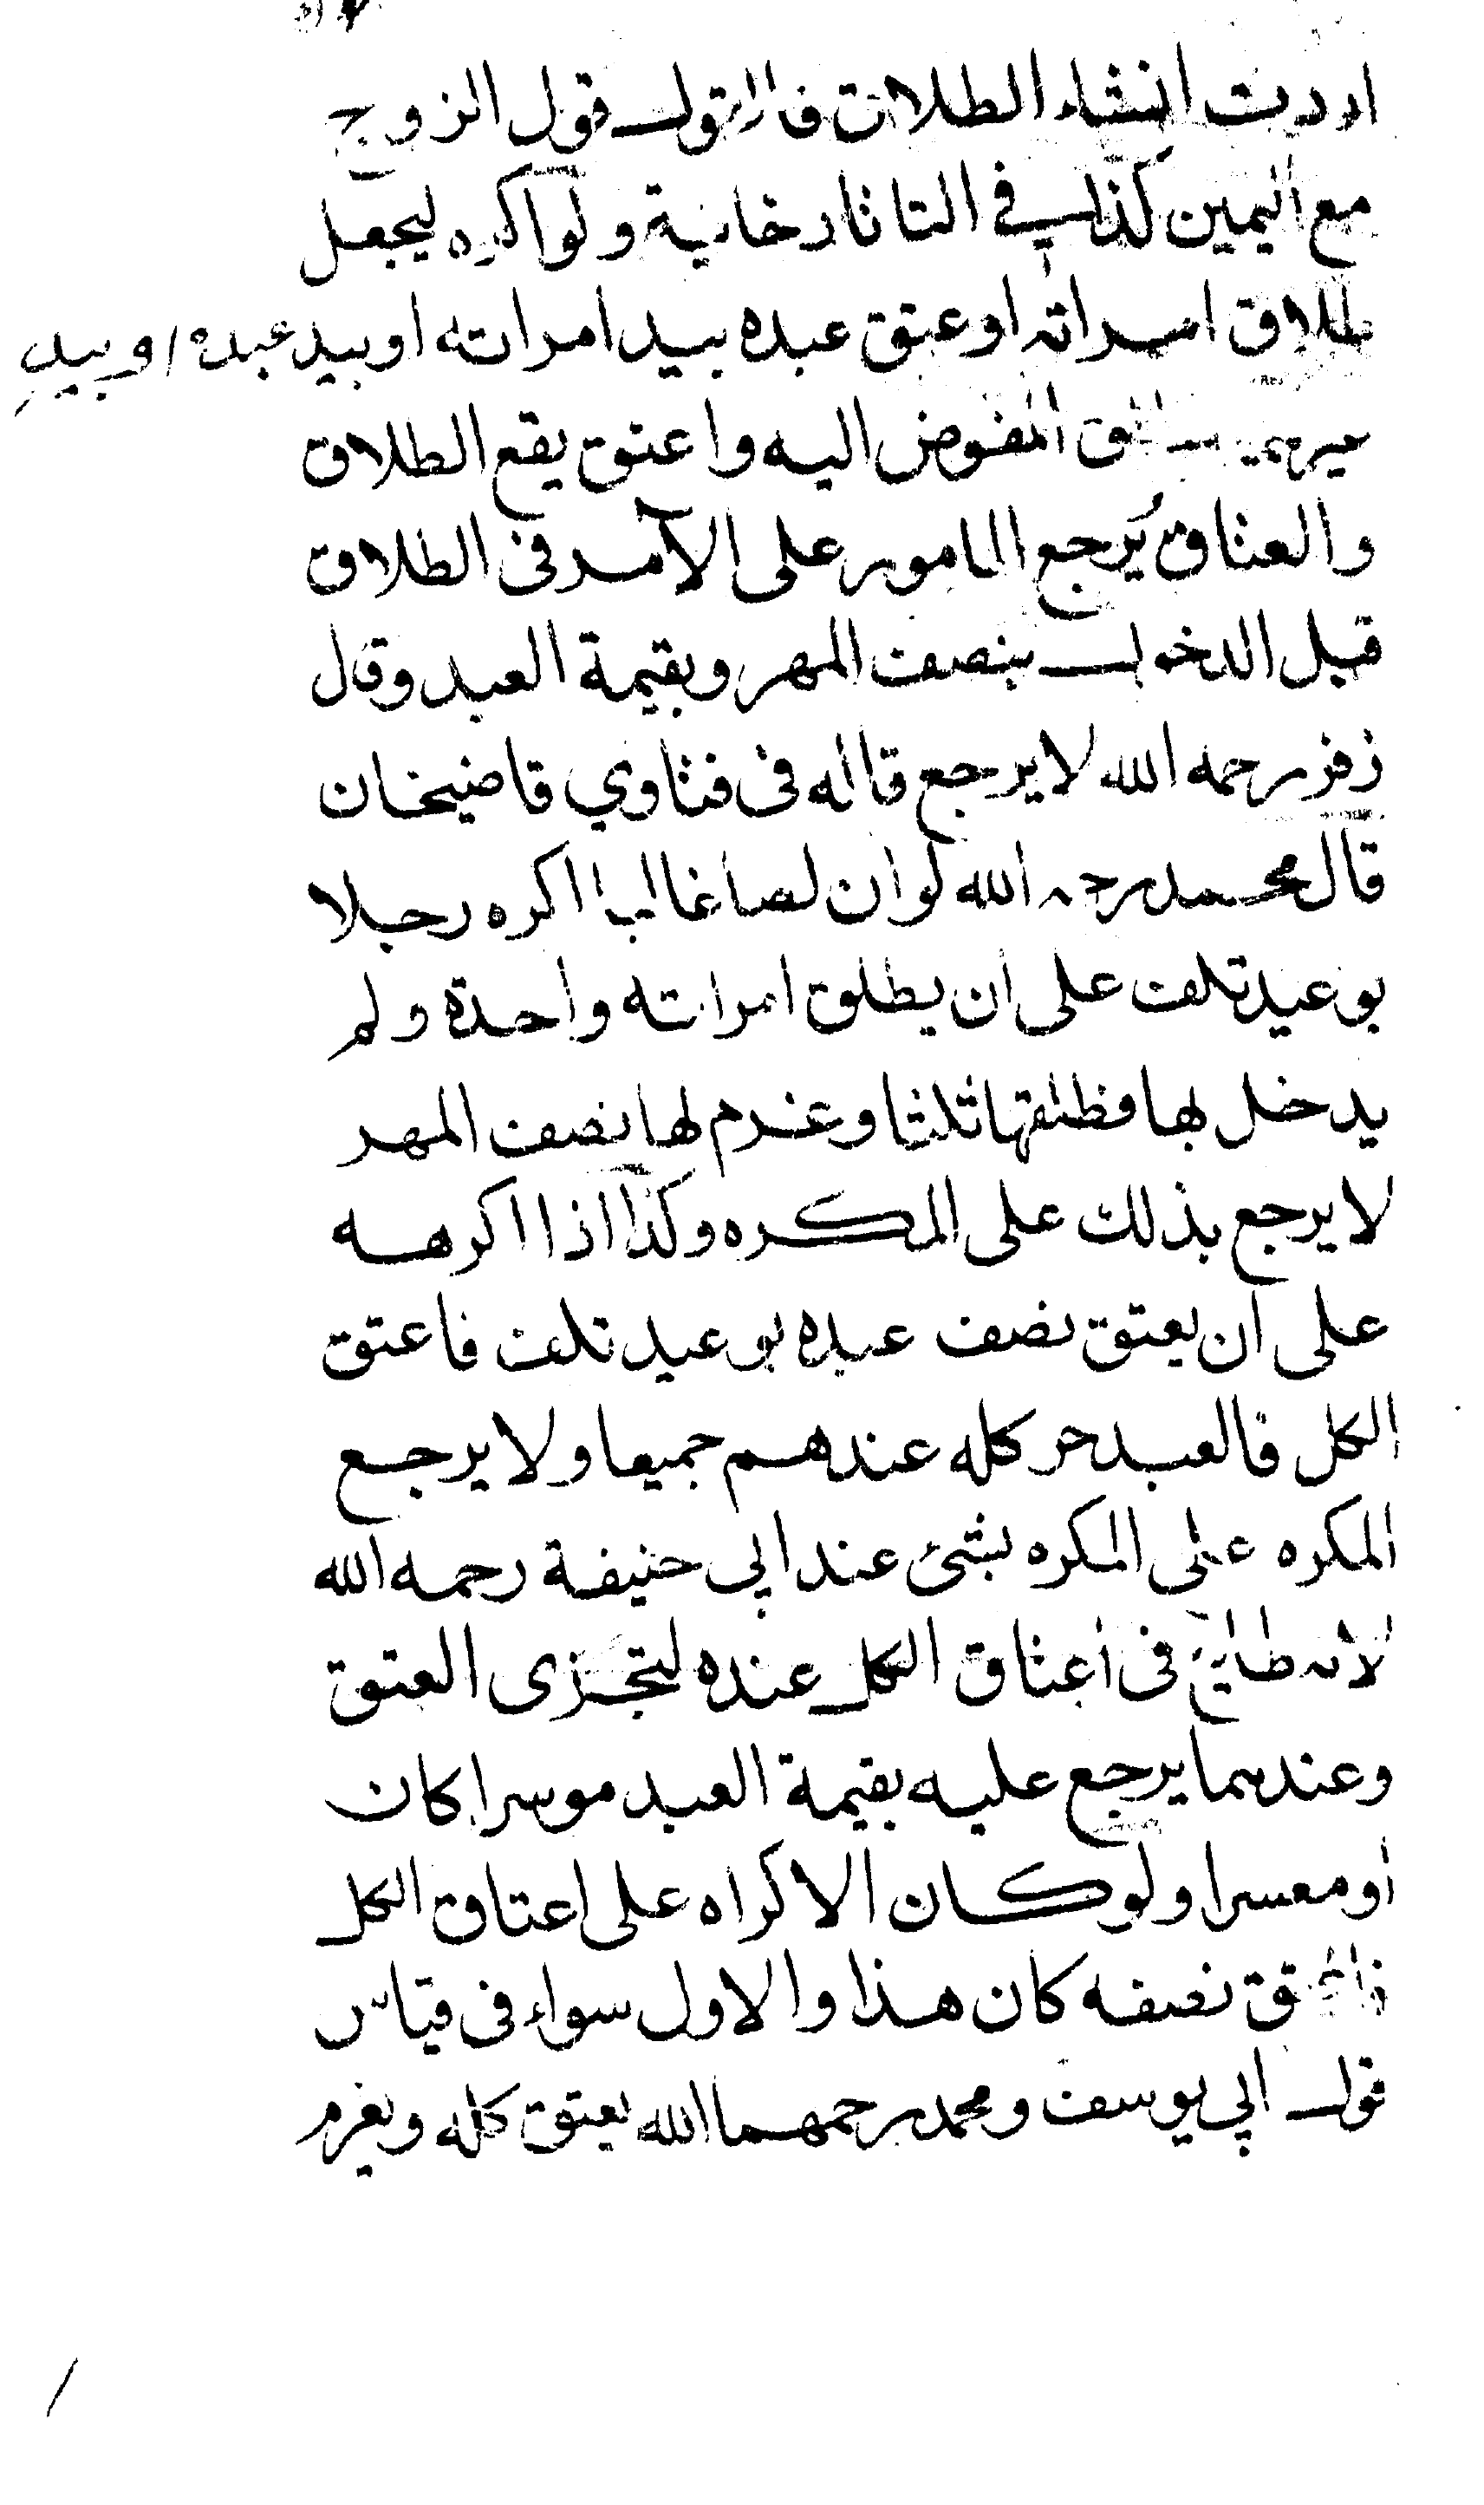 اردت انشاء الطلاق فالقول قول الزوج
مع اليمين كذا في التاتارخانية ولو اكره ليجعل
طلاق امراته او عتق عبده بيد امراته او بيد عبده او بيد
غيرهما المفوض اليه واعتق يقع الطلاق
والعتاق يرجع المامور على الآمر فى الطلاق
قبل الدخول بنصف المهر وبقيمة العبد وقال
زفر رحمه الله لا يرجع قاله فى فتاوي قاضيخان
قال محمد رحمه الله لو ان لصا غالبا اكره رجلا
بوعيد تلف على ان يطلق امراته واحدة ولم
يدخل بها فطلقها ثلثا وغرم لها نصف المهر
لا يرجع بذلك على المكره وكذا اذا اكرهه
على ان يعتق نصف عبده بوعيد تلف فاعتق
الكل فالعبد حر كله عندهم جميعا ولا يرجع
المكره على المكره بشئ عند ابي حنيفة رحمه الله
لانه طايع فى اعتاق الكل عنده لتجزى العتق
وعندهما يرجع عليه بقيمة العبد موسرا كان
او معسرا ولو كان الاكراه على اعتاق الكل
فاعتق نصفه كان هذا والاول سواء فى قياس
قول ابي يوسف ومحمد رحمهما الله يعتق كله ويغرم